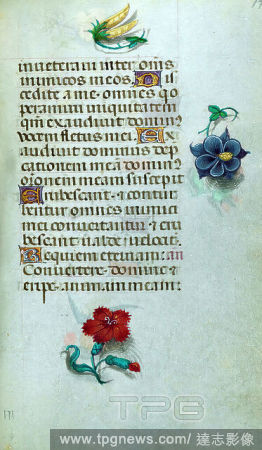 inueteraui inter om̄s
inimicos meos. Dis
cedite a me omnes q̄ o
peramini iniquitatem
qm̄ exaudiuit domin9
vocem fletus mei. Ex
audiuit dominus depꝛe
cationem meā domin9
oꝛōnem meam suscepit
Erubescant & contur
bentur omnes inimici
mei conuertantur & eru
bescant ualde uelociter
Requiem eternam. an
Conuertere domine &
eripe animam meam:
TPG
www.tpgnews.com/達志影像